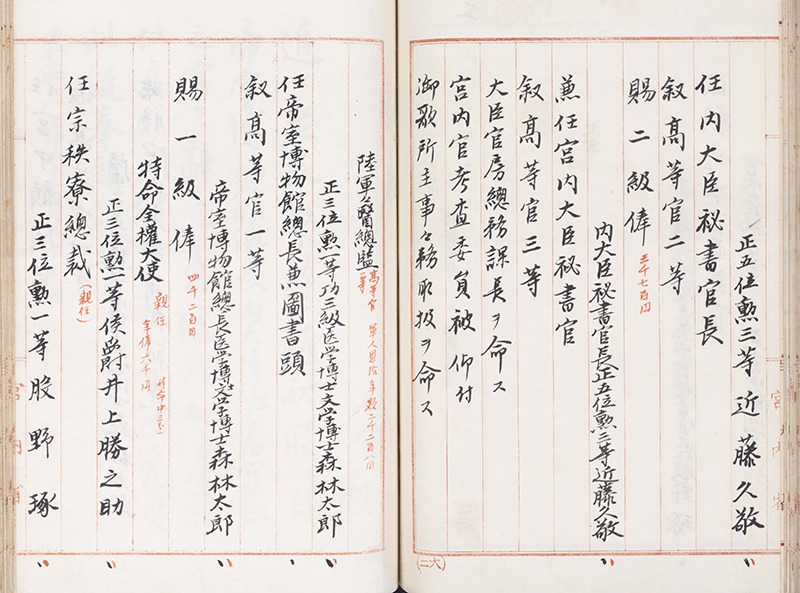 正五位勲三等近藤久敬
任内大臣祕書官長
叙高等官二等
賜二級俸
三千七百円
内大臣祕書官長正五位勲三等近藤久敬
兼任宮内大臣祕書官
叙高等官三等
大臣官房總務課長ヲ命ス
宮内官考査委員被仰付
御歌所主事々務取扱ヲ命ス
(二六)
宮内省
陸軍々醫總監
高等官一等
軍人恩給年額二千二百八円
正三位勲一等功三級医学博士文学博士森林太郎
任帝室博物館總長兼圖書頭
叙高等官一等
帝室博物館總長医学博士文学博士森林太郎
賜一級俸
四千二百円
特命全權大使
親任
年俸六千円
正三位勲一等侯爵井上勝之助
任宗秩寮總裁
(親任)
正三位勲一等股野琢
宮内省